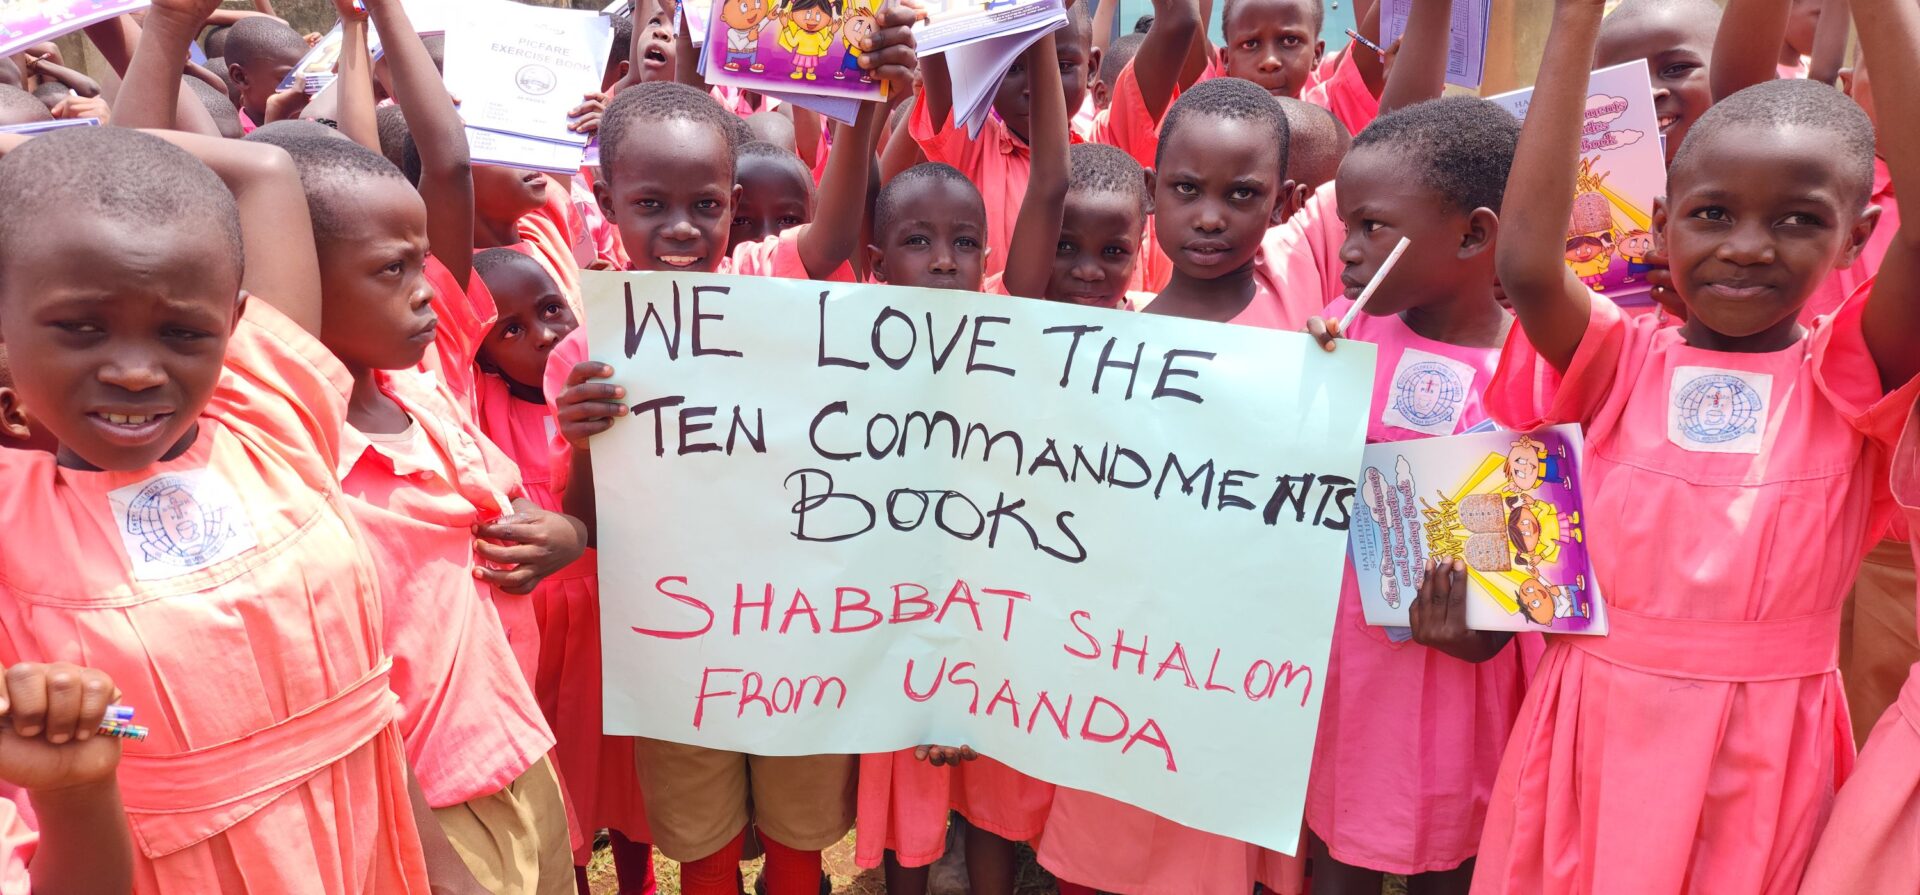 PICFARE
EXERCISE BOOK
WE LOVE THE
TEN COMMANDMENTS
BOOKS
SHABBAT SHALOM
FROM UGANDA
HALLELUYAH
SCRIPTURES
Ten Commandments
and Beatitudes
Colouring Book